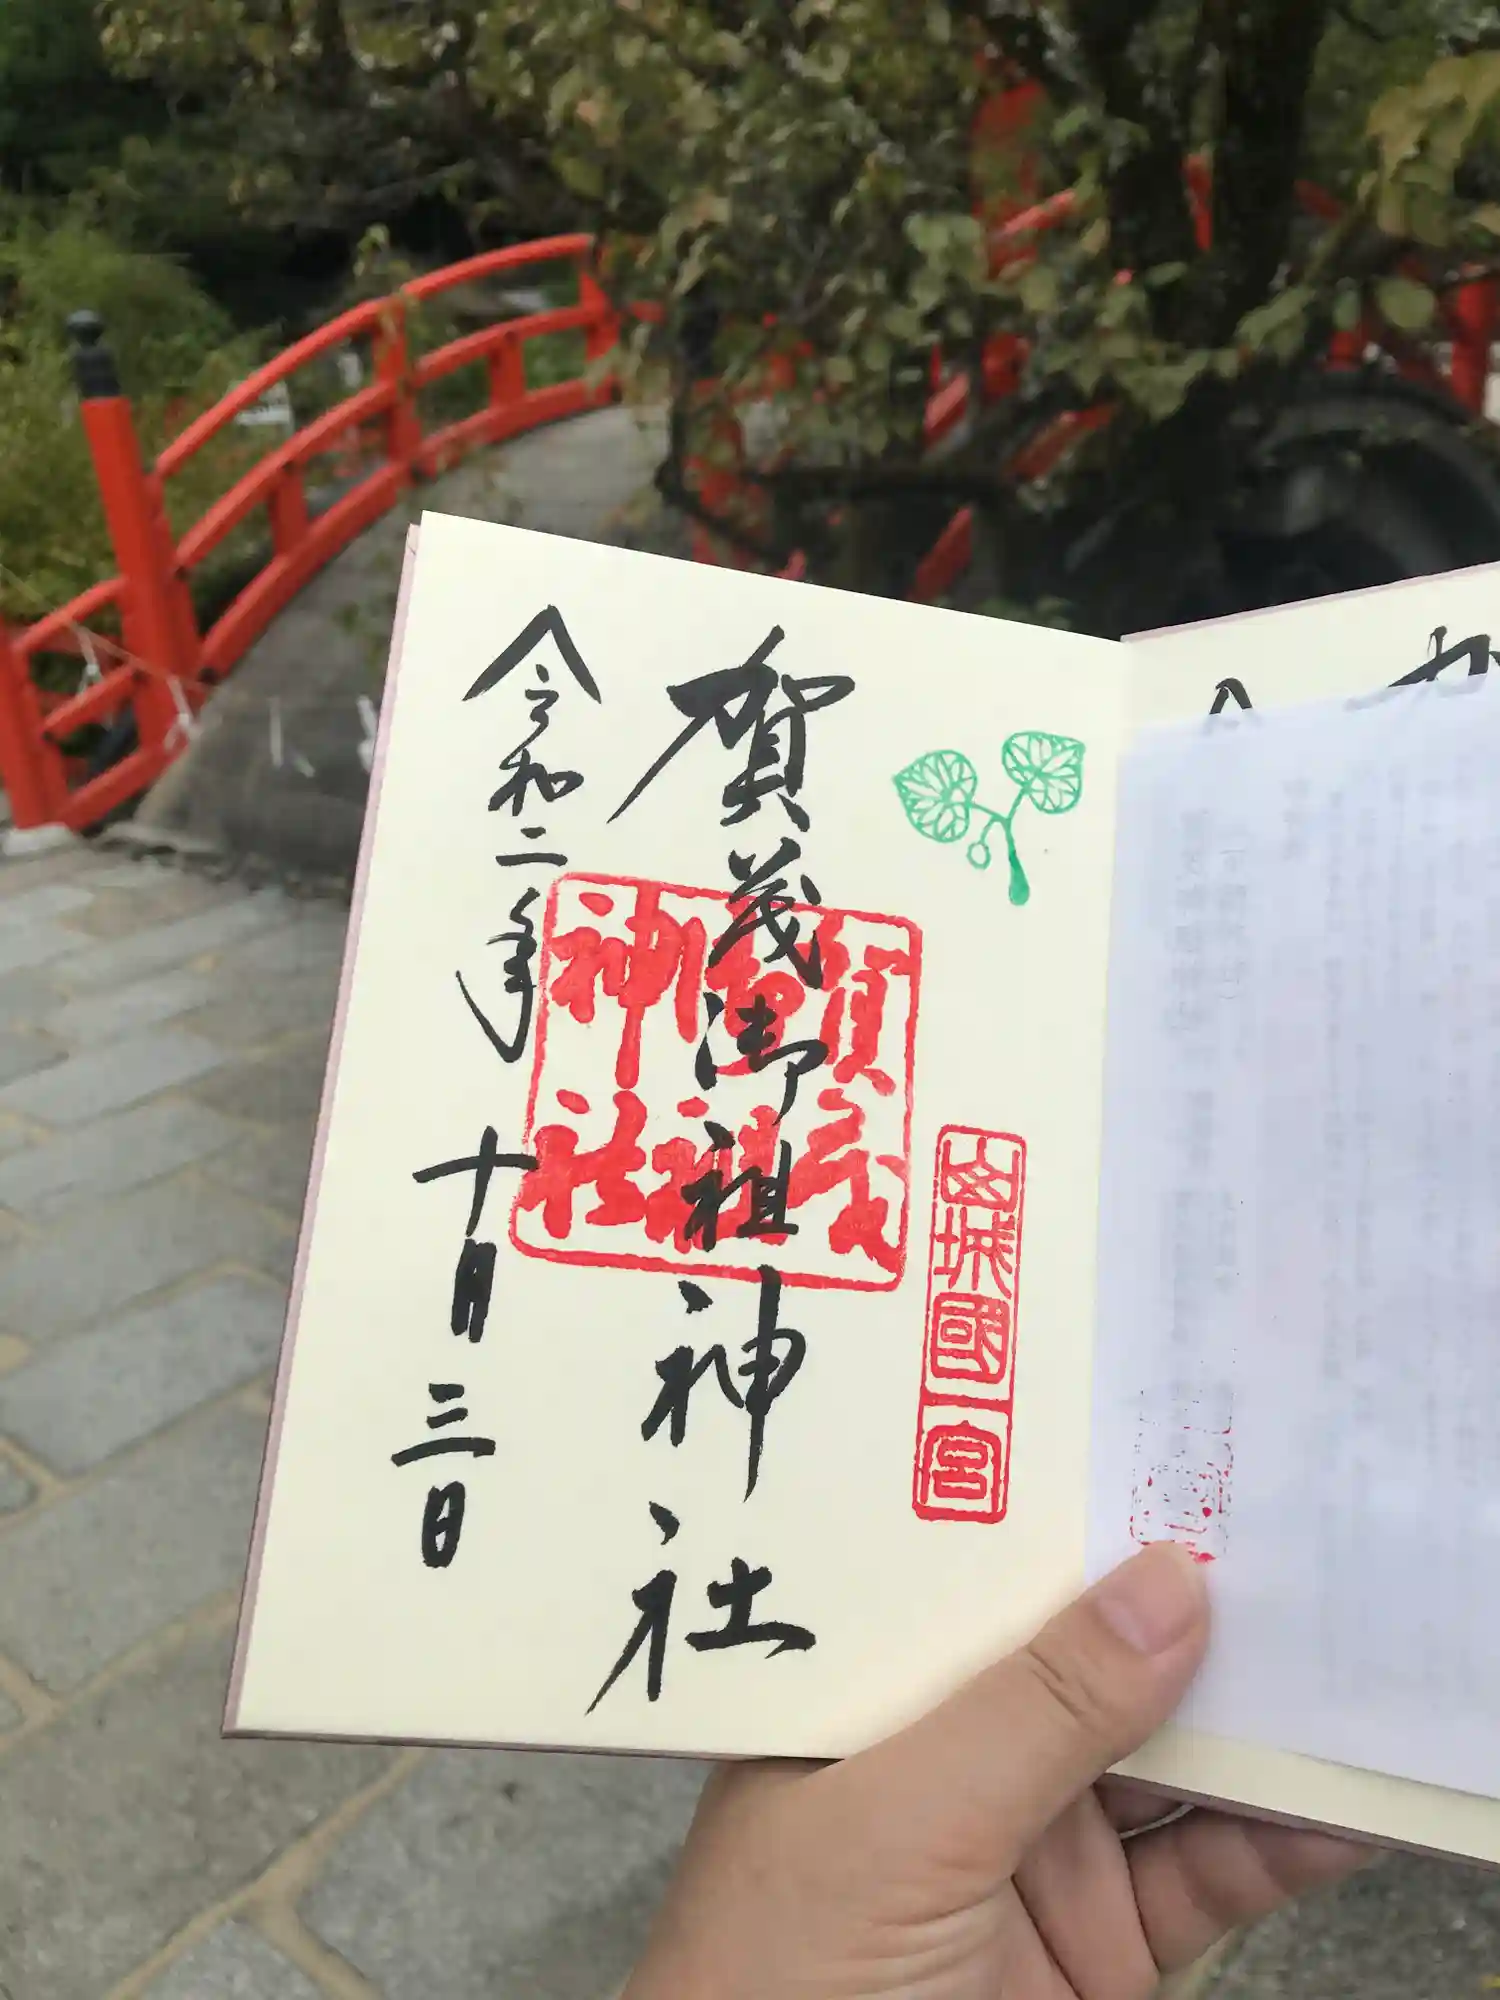 山城國一宮
賀茂御祖神社
賀茂御祖神社
令和二年十月三日